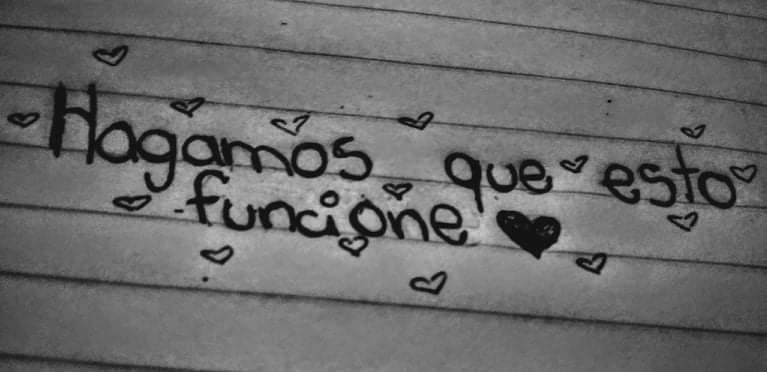 Hagamos que esto
funcione